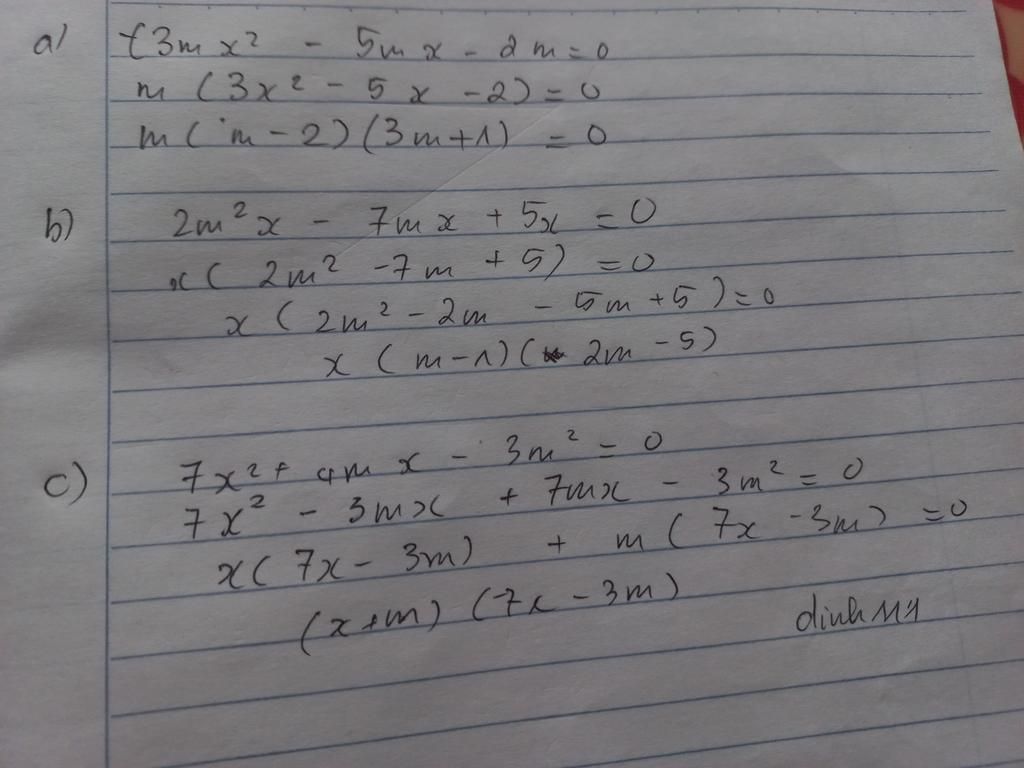 a) 3mx² - 5mx - 2m = 0
m (3x² - 5x - 2) = 0
m (m - 2) (3m + 1) = 0
b) 2m²x - 7mx + 5x = 0
x ( 2m² - 7m + 5) = 0
x ( 2m² - 2m - 5m + 5 ) = 0
x ( m - 1) ( 2m - 5)
c) 7x² + 4mx - 3m² = 0
7x² - 3mx + 7mx - 3m² = 0
x ( 7x - 3m) + m ( 7x - 3m) = 0
(x + m) (7x - 3m)